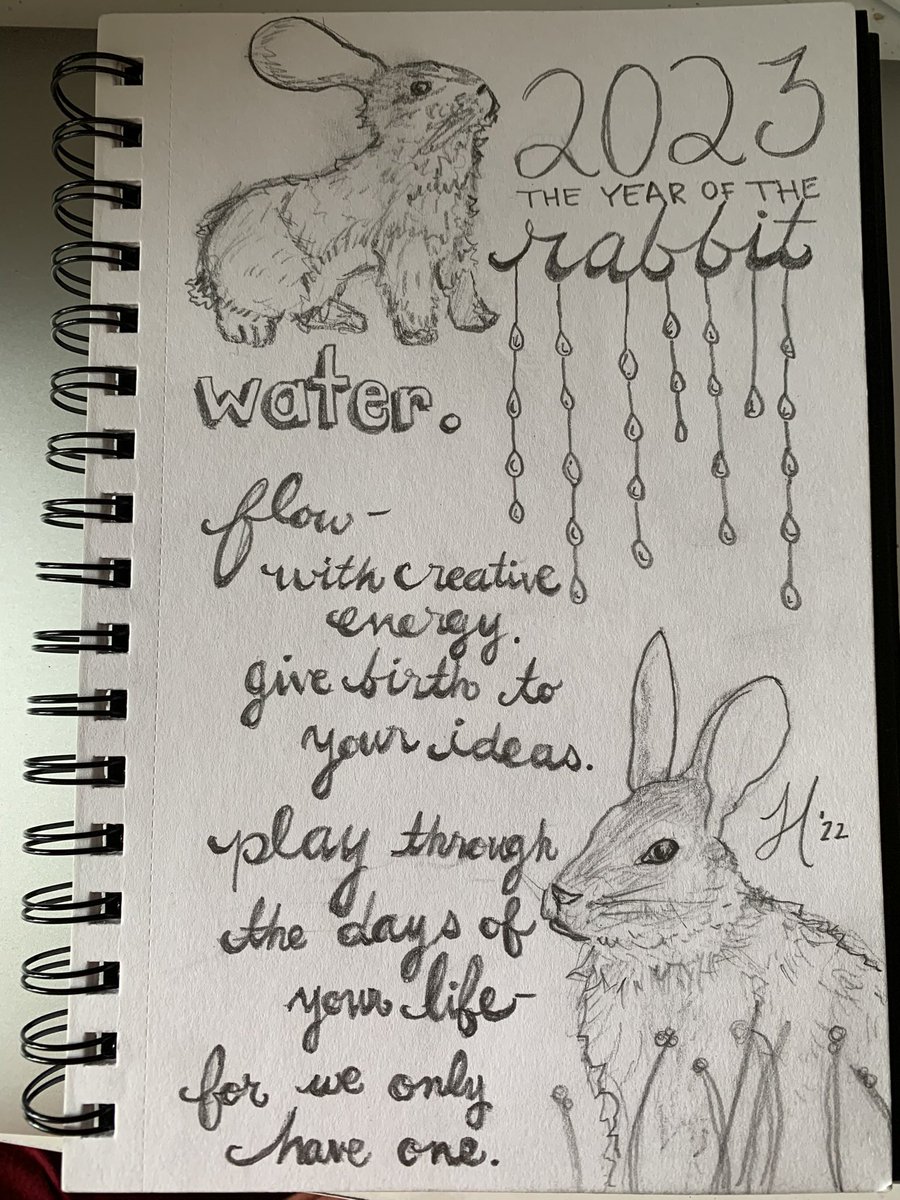 2023
THE YEAR OF THE
rabbit
water.
flow-
with creative
energy.
give birth to
your ideas.
play through
the days of
your life-
for we only
have one.
H '22